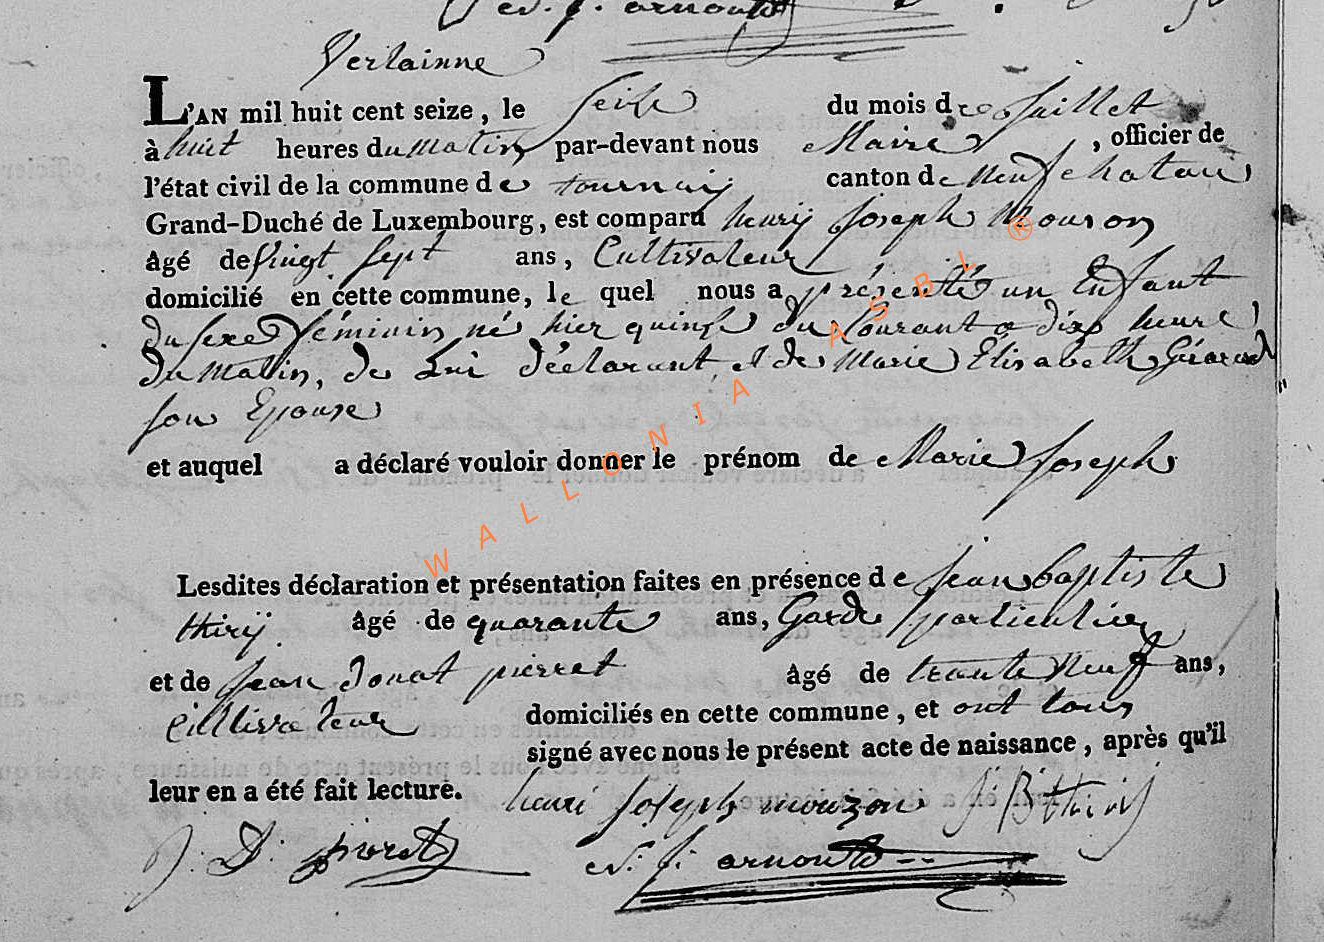 N. J. arnould
Verlainne
L'AN mil huit cent seize, le seize du mois de Juillet
à huit heures du matin par-devant nous Maire, officier de
l'état civil de la commune de tournaij canton de Neufchateau
Grand-Duché de Luxembourg, est comparu henrij Joseph Mouson
âgé de vingt sept ans, Cultivateur
domicilié en cette commune, le quel nous a présenté un Enfant
du sexe féminin né hier quinse du Courant a dix heure
du matin, de Lui déclarant, et de Marie Élisabeth Gérard
son Epouse
et auquel a déclaré vouloir donner le prénom de Marie Joseph
Lesdites déclaration et présentation faites en présence de Jean baptiste
thirij âgé de quarante ans, Garde particulier
et de Jean donat pierret âgé de trente Neuf ans,
Cultivateur domiciliés en cette commune, et ont tous
signé avec nous le présent acte de naissance, après qu'il
leur en a été fait lecture. henri Joseph mouzon J B thirij
J: D: pierret N. J. arnould
WALLONIA ASBL ®